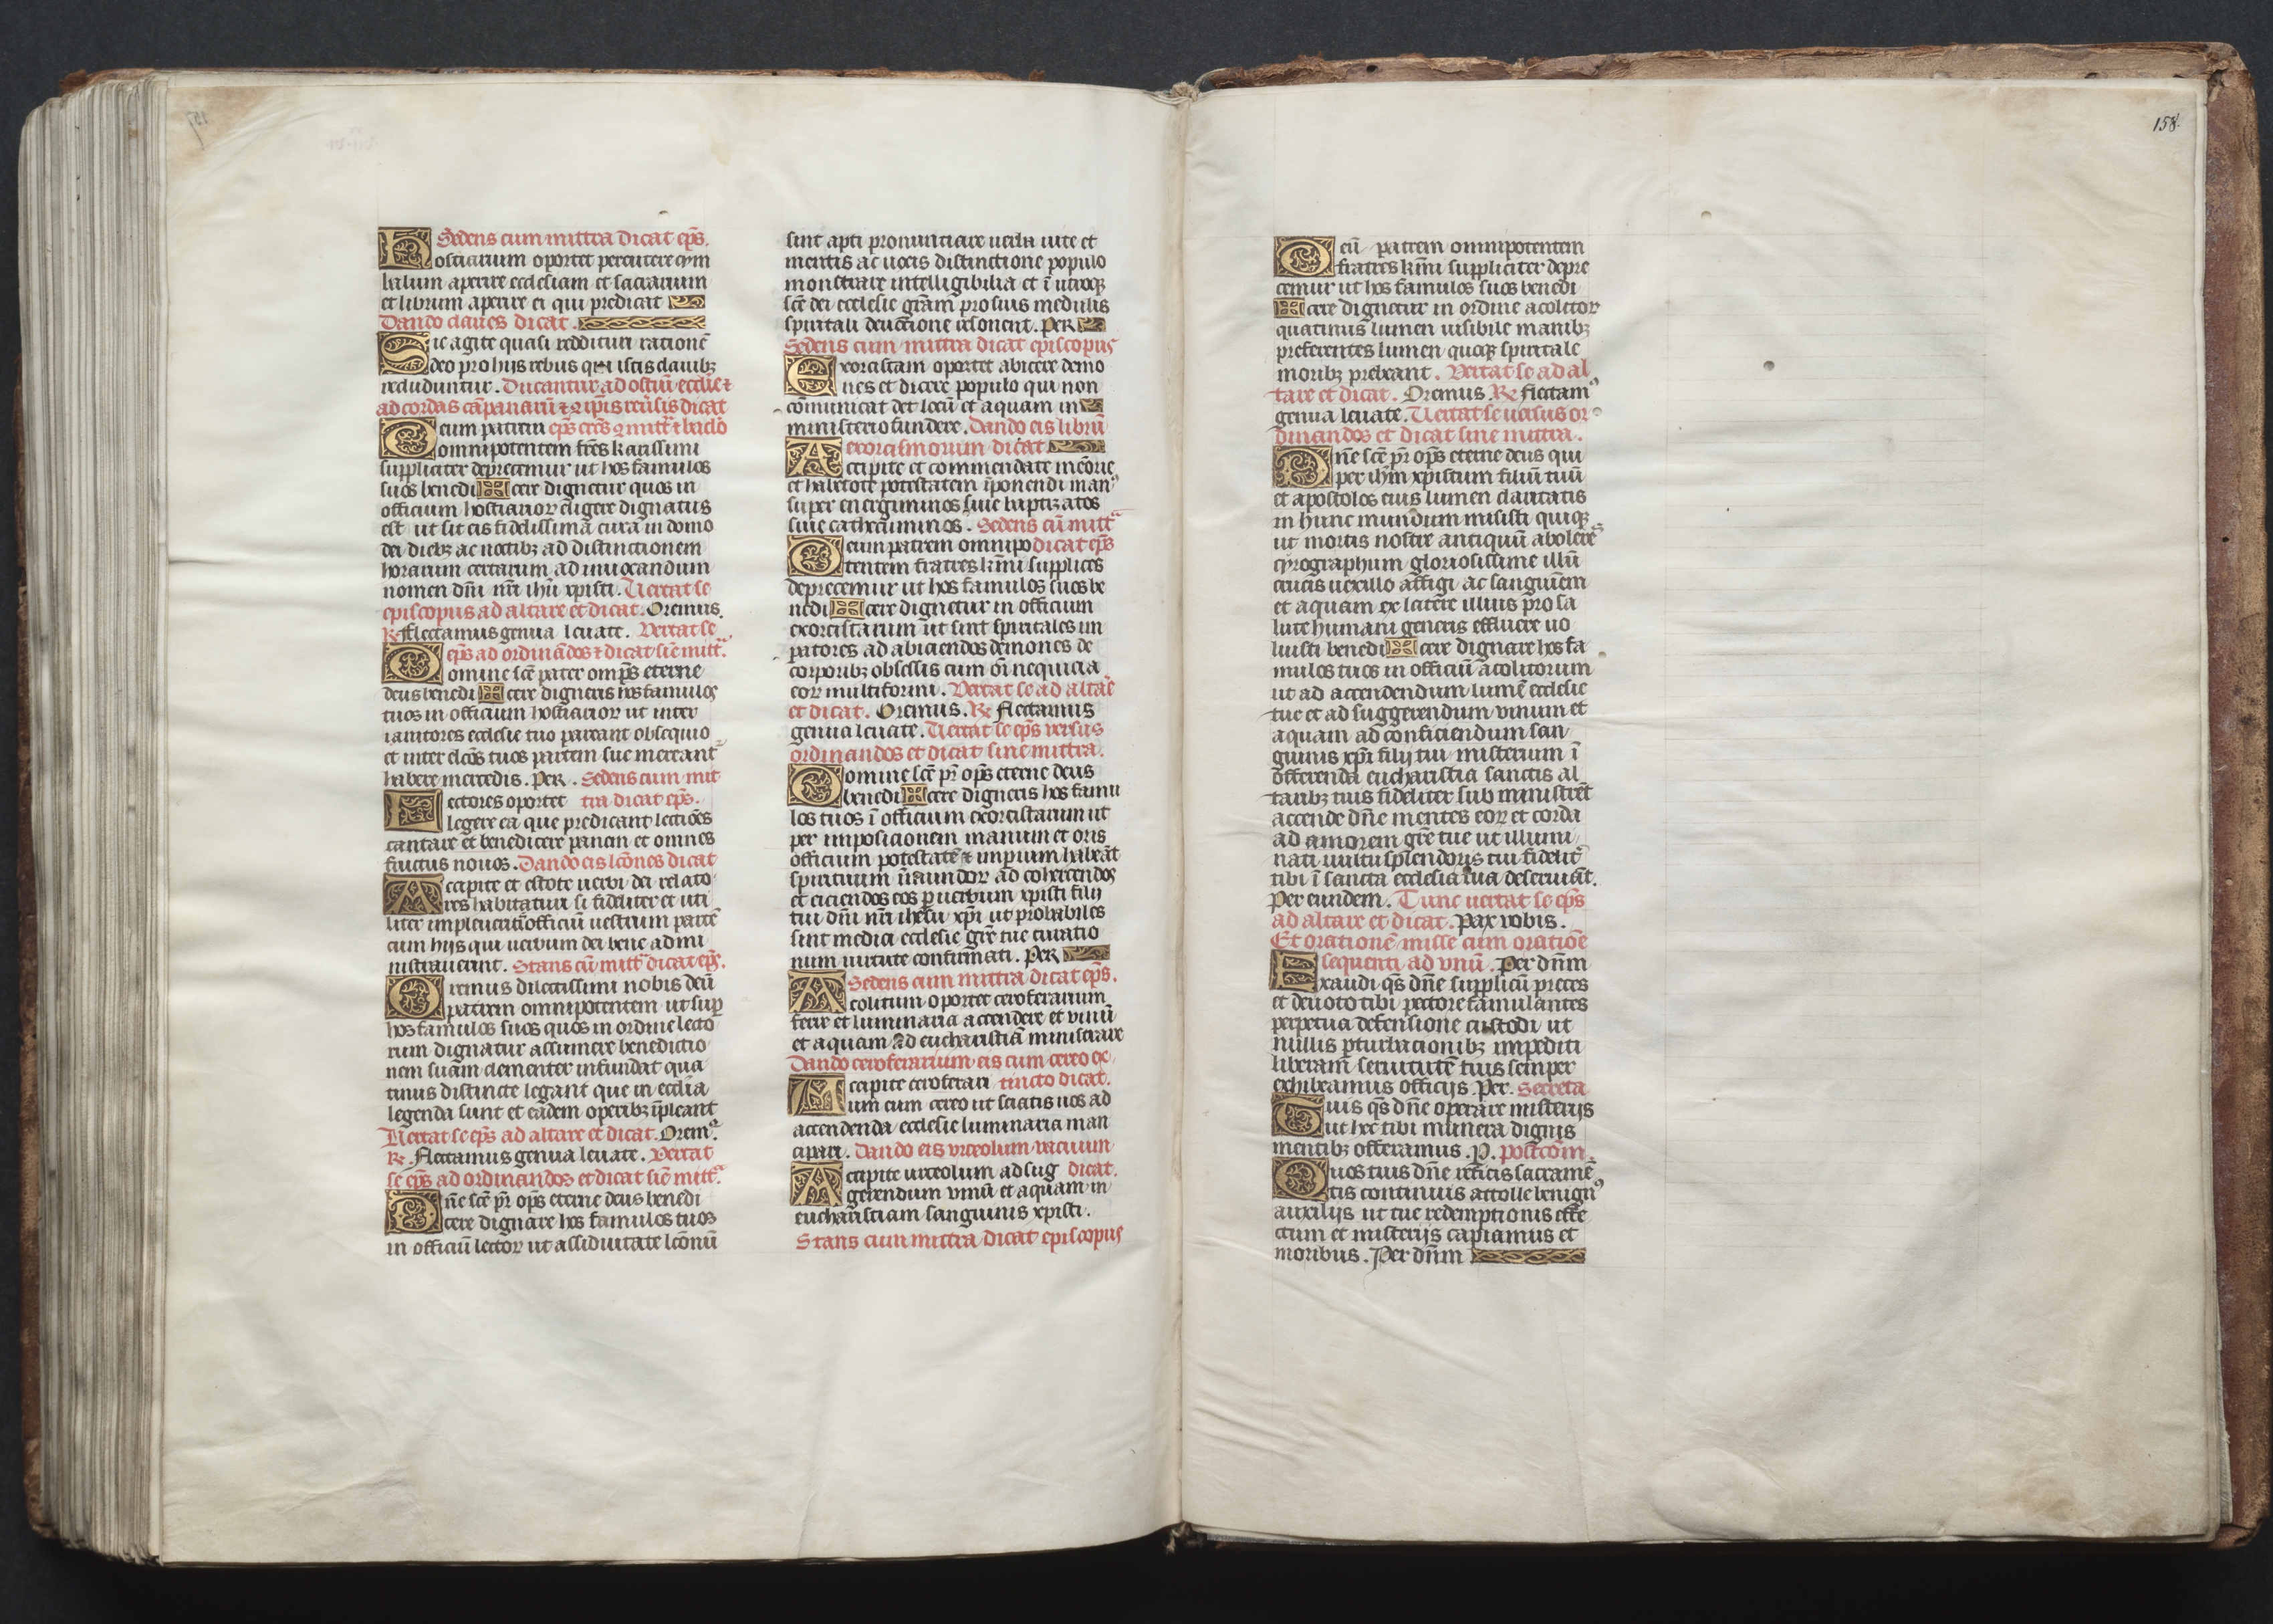 Sedens cum mittra dicat ep̄s.
Hostiarium oportet percutere cym
balum aperire ecclesiam et sacrarium
et librum aperire ei qui predicat
Dando claues dicat.
Sic agite quasi reddituri rationē
deo pro hijs rebus que istis clauibꝫ
recluduntur. Ducantur ad ostiū ecclīe ⁊
ad cordas cāpanarū ⁊
Deum patrem
omnipotentem fr̄es karissimi
suppliciter deprecemur ut hos famulos
suos benedi ✠ cere dignetur quos in
officium hostiarioꝝ eligere dignatus
est ut sit eis fidelissima cura in domo
dei diebꝫ ac noctibꝫ ad distinctionem
horarum certarum ad inuocandum
nomen dn̄i nr̄i ihū xpisti. Uertat se
episcopus ad altare et dicat. Oremus.
℞. Flectamus genua leuate. Vertat se
ep̄s ad ordinādos ⁊ dicat sīe mitt.
Domine scē pater omp̄s eterne
deus benedi ✠ cere digneris hos famulos
tuos in officium hostiarioꝝ ut inter
ianitores ecclesie tuo pareant obsequio
et inter elcōs tuos partem sue mereant
habere mercedis. Per. Sedens cum mit
Lectores oportet tra dicat ep̄s.
legere ea que predicant lectiōes
cantare et benedicere panem et omnes
fructus nouos. Dando eis lcōnes dicat
Accipite et estote uerbi dei relato
res habitaturi si fideliter et uti
liter impleueritis officiū uestrum partē
cum hijs qui uerbum dei bene admi
nistrauerunt. Stans cū mitt dicat ep̄s.
Oremus dilectissimi nobis deū
patrem omnipotentem ut sup
hos famulos suos quos in ordine lecto
rum dignatur assumere benedictio
nem suam clementer infundat qua
tinus distincte legant que in ecclīa
legenda sunt et eadem operibꝫ īpleant
Uertat se ep̄s ad altare et dicat. Orem⁹.
℞. Flectamus genua leuate. Vertat
se ep̄s ad ordinandos et dicat sīe mitt.
Dn̄e scē pr̄ op̄s eterne deus benedi
cere dignare hos famulos tuos
in officiū lectoꝝ ut assiduitate lcōnū
sint apti pronunciare uerba uite et
mentis ac uocis distinctione populo
monstrare intelligibilia et ī utroqꝫ
scē dei ecclesie grām pro suis medulis
spiritali deuocione resonent. Per
Sedens cum mittra dicat episcopus
Exorcistam oportet abicere demo
nes et dicere populo qui non
cōmunicat det locū et aquam in
ministerio fundere. Dando eis librū
exorcismorum dicat
Accipite et commendate meōrie
et habetote potestatem īponendi man⁹
super energuminos siue baptizatos
siue cathecuminos. Sedens cū mitt
Deum patrem omnipo dicat ep̄s
tentem fratres kīmi supplices
deprecemur ut hos famulos suos be
nedi ✠ cere dignetur in officium
exorcistarum ut sint spiritales im
peratores ad abiciendos demones de
corporibꝫ obsessis cum oī nequicia
eoꝝ multiformi. Vertat se ad altaē
et dicat. Oremus. ℞ Flectamus
genua leuate. Uertat se ep̄s versus
ordinandos et dicat sine mittra.
Domine scē pr̄ op̄s eterne deus
benedi ✠ cere digneris hos famu
los tuos ī officium exorcistarum ut
per imposicionem manuum et oris
officium potestatē ⁊ imperium habeāt
spirituum īmundoꝝ ad cohercendos
et eiciendos eos p uerbum xpisti filij
tui dn̄i nr̄i ihesu xp̄i ut probabiles
sint medici ecclesie grē tue curatio
num uirtute confirmati. Per
Sedens cum mittra dicat ep̄s.
Acolitum oportet ceroferarium
ferre et luminaria accendere et vinū
et aquam ad eucharistiā ministrare
Dando ceroferarium eis cum cereo ex
Accipite ceroferari tincto dicat.
um cum cereo ut sciatis uos ad
accendenda ecclesie luminaria man
cipari. Dando eis vrceolum vacuum
Accipite urceolum ad sug dicat.
gerendum vinū et aquam in
eucharistiam sanguinis xpisti.
Stans cum mittra dicat episcopus
Deū patrem omnipotentem
fratres kīmi suppliciter depre
cemur ut hos famulos suos benedi
✠ cere dignetur in ordine acolitoꝝ
quatinus lumen uisibile manibꝫ
preferentes lumen quoqꝫ spiritale
moribꝫ prebeant. Vertat se ad al
tare et dicat. Oremus. ℞ Flectam⁹
genua leuate. Uertat se uersus or
dinandos et dicat sine mittra.
Dn̄e scē pr̄ op̄s eterne deus qui
per ihm̄ xpistum filiū tuū
et apostolos eius lumen claritatis
in hunc mundum misisti quiqꝫ
ut mortis nostre antiquū aboleres
cyrographum gloriosissime illū
crucis uexillo affigi ac sanguīem
et aquam ex latere illius pro sa
lute humani generis effluere uo
luisti benedi ✠ cere dignare hos fa
mulos tuos in officiū acolitorum
ut ad accendendum lumē ecclesie
tue et ad suggerendum vinum et
aquam ad conficiendum san
guinis xpr̄i filij tui misterium ī
offerenda eucharistia sanctis al
taribꝫ tuis fideliter sub ministrēt
accende dn̄e mentes eoꝝ et corda
ad amorem grē tue ut illumi
nati uultu splendoris tui fidelit
tibi ī sancta ecclesia tua deseruiāt.
Per eundem. Tunc uertat se ep̄s
ad altare et dicat. Pax vobis.
Et orationē misse cum oratiōe
sequenti ad vnū. Per dn̄m
Exaudi qs̄ dn̄e supplicū preces
et deuoto tibi pectore famulantes
perpetua defensione custodi ut
nullis pturbacionibꝫ impediti
liberam seruitutē tuis semper
exhibeamus officijs. Per. Secreta
Tuis qs̄ dn̄e operare misterijs
ut hec tibi munera dignis
mentibꝫ offeramus. P. postcōm.
Quos tuis dn̄e reficis sacramē
tis continuis attolle benign⁹
auxilijs ut tue redemptionis effe
ctum et misterijs capiamus et
moribus. Per dn̄m
158.